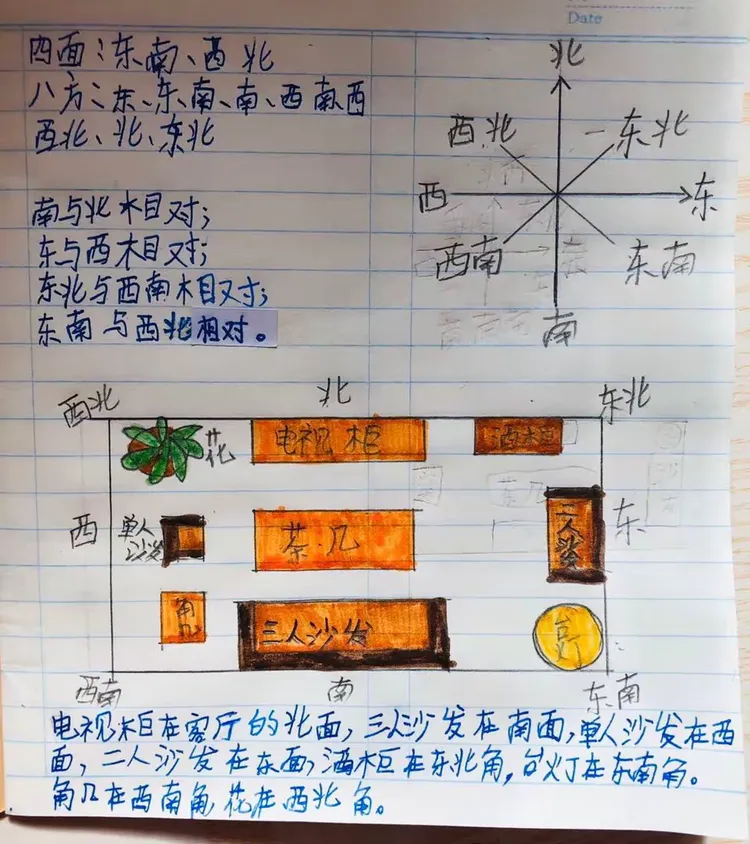 Date
四面:东南、西北
八方:东、东南、南、西南西
西北、北、东北
北
西北
东北
西
东
西南
东南
南
南与北相对;
东与西相对;
东北与西南相对;
东南与西北相对。
西北
北
东北
花
电视柜
酒柜
西
单人
沙发
茶几
二人沙发
东
角几
三人沙发
台灯
西南
南
东南
电视柜在客厅的北面,三人沙发在南面,单人沙发在西
面,二人沙发在东面,酒柜在东北角,台灯在东南角。
角几在西南角花在西北角。